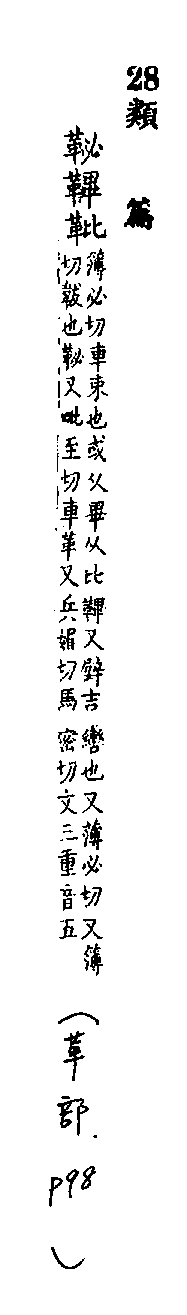 28 類篇
䩛鞸𩊰
薄必切車束也或从畢从比鞸又壁吉
切韍也䩛又毗至切車革又兵媚切馬
轡也又薄必切又簿
密切文三重音五
(革部.p98)